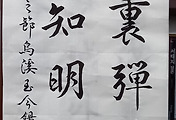 裏彈
知明
之節烏溪玉今錫